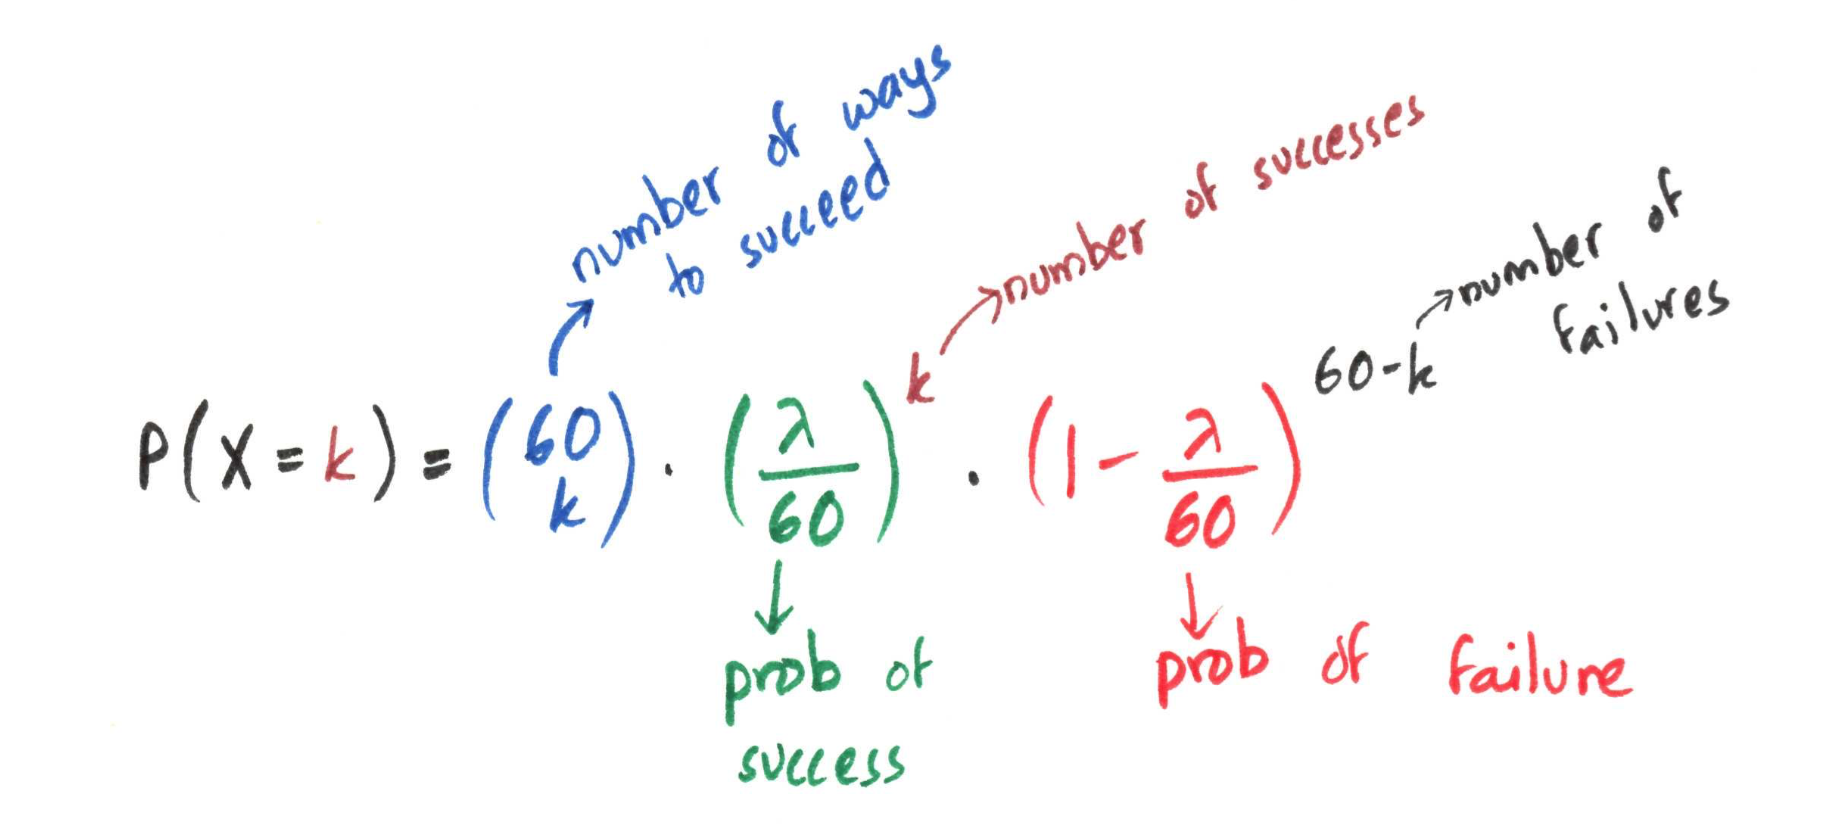 number of ways
to succeed
number of successes
number of
failures
P(X = k) = (60 k) · (λ/60)^k · (1 - λ/60)^60-k
prob of
success
prob of failure